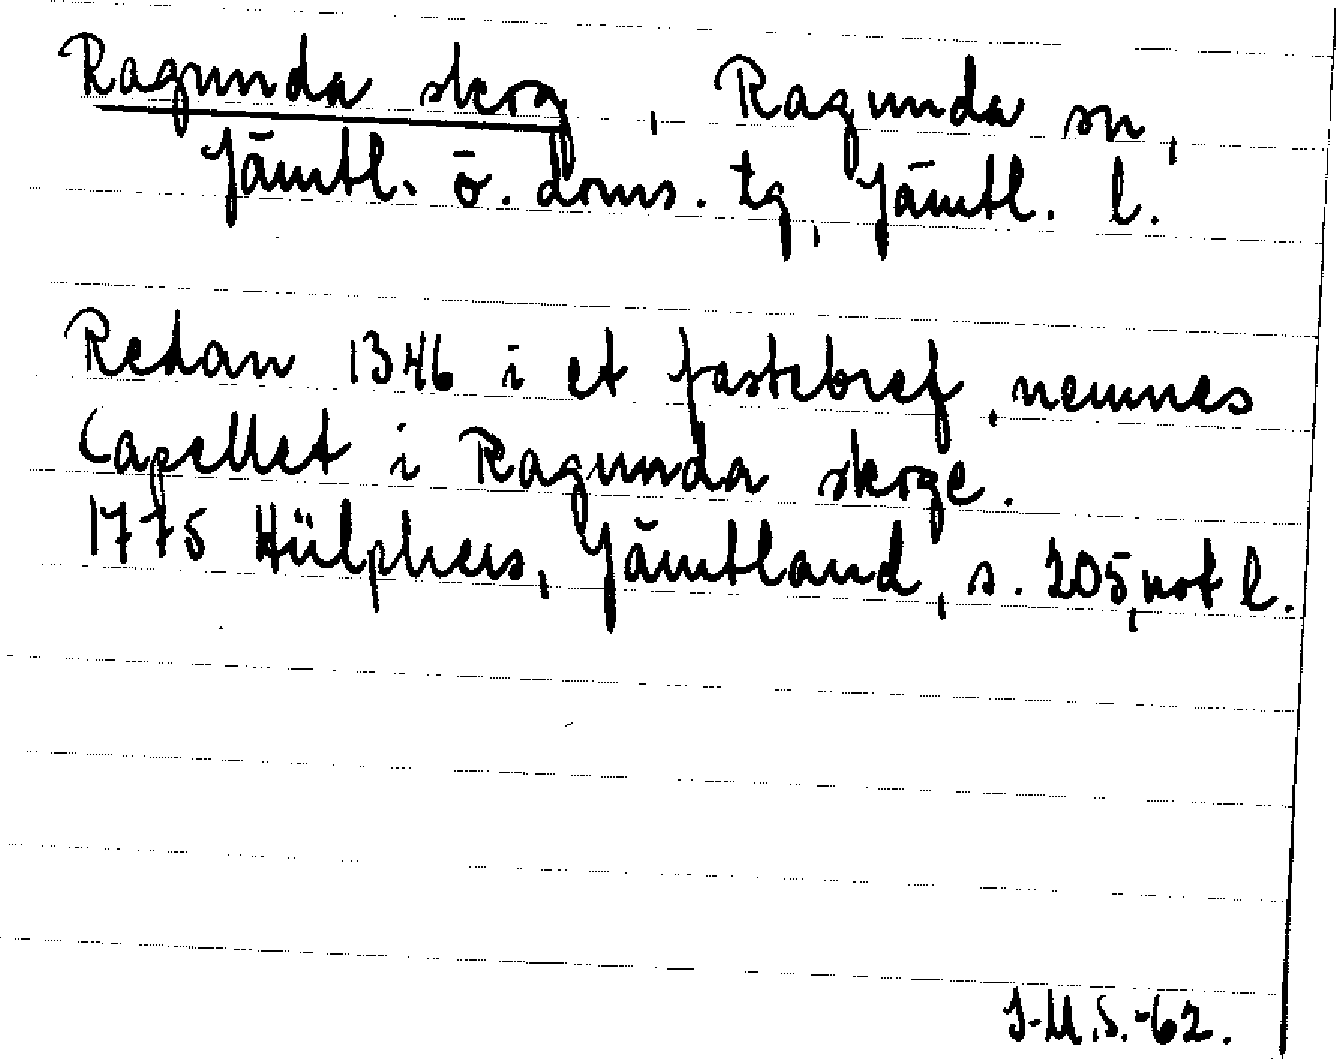 Ragunda skog, Ragunda sn,
Jämtl. ö. doms. tg, Jämtl. l.
Redan 1346 i et fastebref, nemnes
Capellet i Ragunda skoge.
1775 Hülphers, Jämtland, s. 205, not l.
J-M.S.-62.